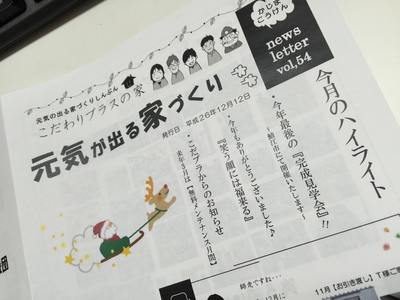 かじま
こうけん
news
letter
vol,54
元気の出る家づくりしんぶん
こだわりプラスの家
元気が出る家づくり
発行日 平成26年12月12日
今月のハイライト
・今年最後の『完成見学会』!!
～鯖江市にて開催いたします～
・今年もありがとうございました♪
『笑う顔には福来る』
・こだプラからのお知らせ
来年3月は【無料メンテナンス月間】
師走ですね・・・
12月に
11月【お引き渡し】T様ご